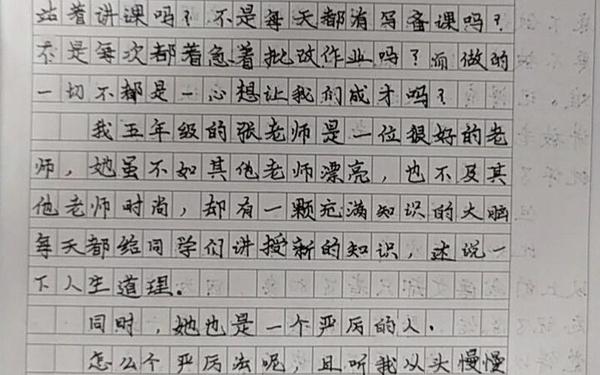 站着讲课吗？不是每天都有写备课吗？
不是每次都着急着批改作业吗？而做的
一切不都是一心想让我们成才吗？
我五年级的张老师是一位狠好的老
师，她虽不如其他老师漂亮，也不及其
他老师时尚，却有一颗充满知识的大脑
每天都给同学们讲授新的知识，还说一
下人生道理。
同时，她也是一个严厉的人．
怎么个严厉法呢，且听我从头慢慢